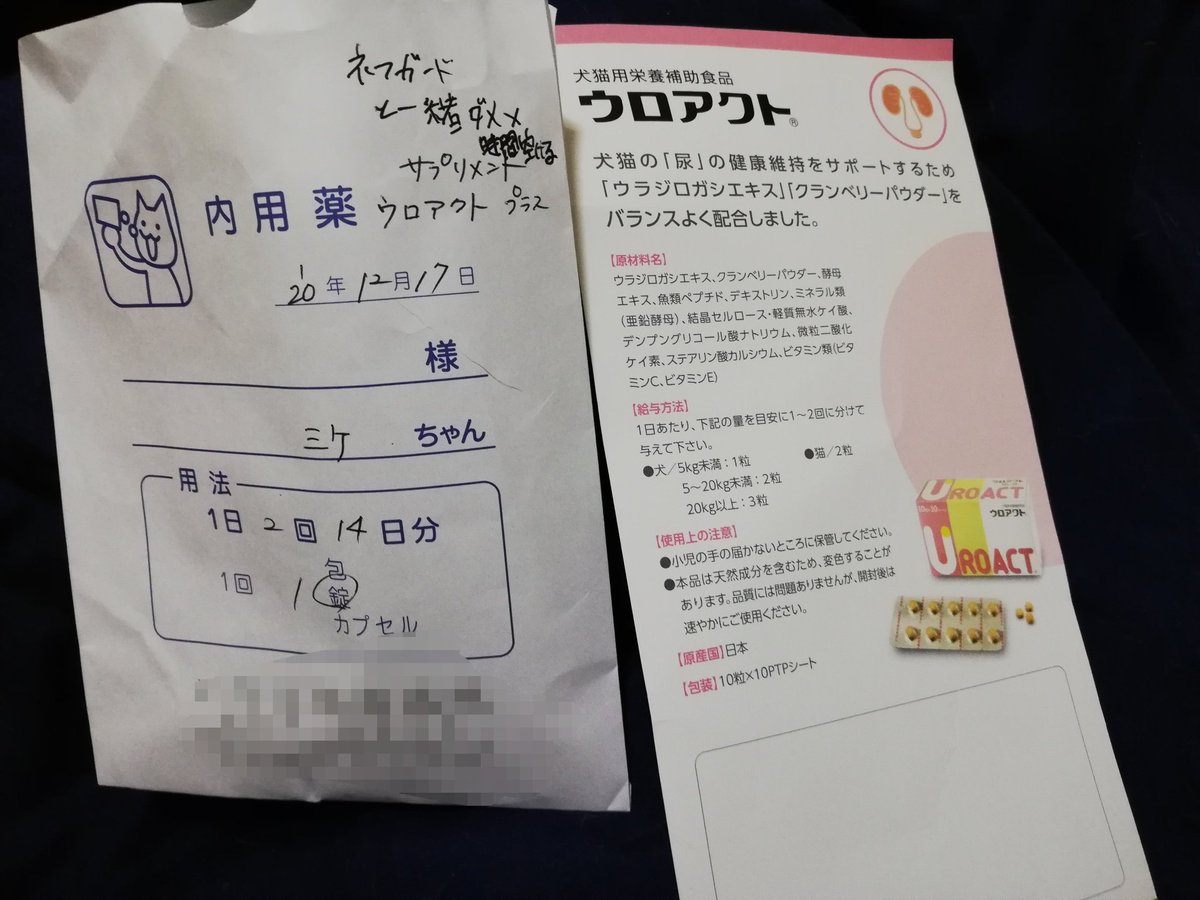 ネフガード
と一緒ダメ×
時間空ける
サプリメント
内用薬 ウロアクト プラス
'20年12月17日
様
ミケ ちゃん
用法
1日2回14日分
包
1回 1 錠
カプセル
犬猫用栄養補助食品
ウロアクト®
犬猫の「尿」の健康維持をサポートするため
「ウラジロガシエキス」「クランベリーパウダー」を
バランスよく配合しました。
【原材料名】
ウラジロガシエキス、クランベリーパウダー、酵母
エキス、魚類ペプチド、デキストリン、ミネラル類
(亜鉛酵母)、結晶セルロース・軽質無水ケイ酸、
デンプングリコール酸ナトリウム、微粒二酸化
ケイ素、ステアリン酸カルシウム、ビタミン類(ビタ
ミンC、ビタミンE)
【給与方法】
1日あたり、下記の量を目安に1〜2回に分けて
与えて下さい。
●犬/5kg未満：1粒 ●猫/2粒
5〜20kg未満：2粒
20kg以上：3粒
【使用上の注意】
●小児の手の届かないところに保管してください。
●本品は天然成分を含むため、変色することが
あります。品質には問題ありませんが、開封後は
速やかにご使用ください。
【原産国】日本
【包装】10粒×10PTPシート
UROACT
ウロアクト
UROACT